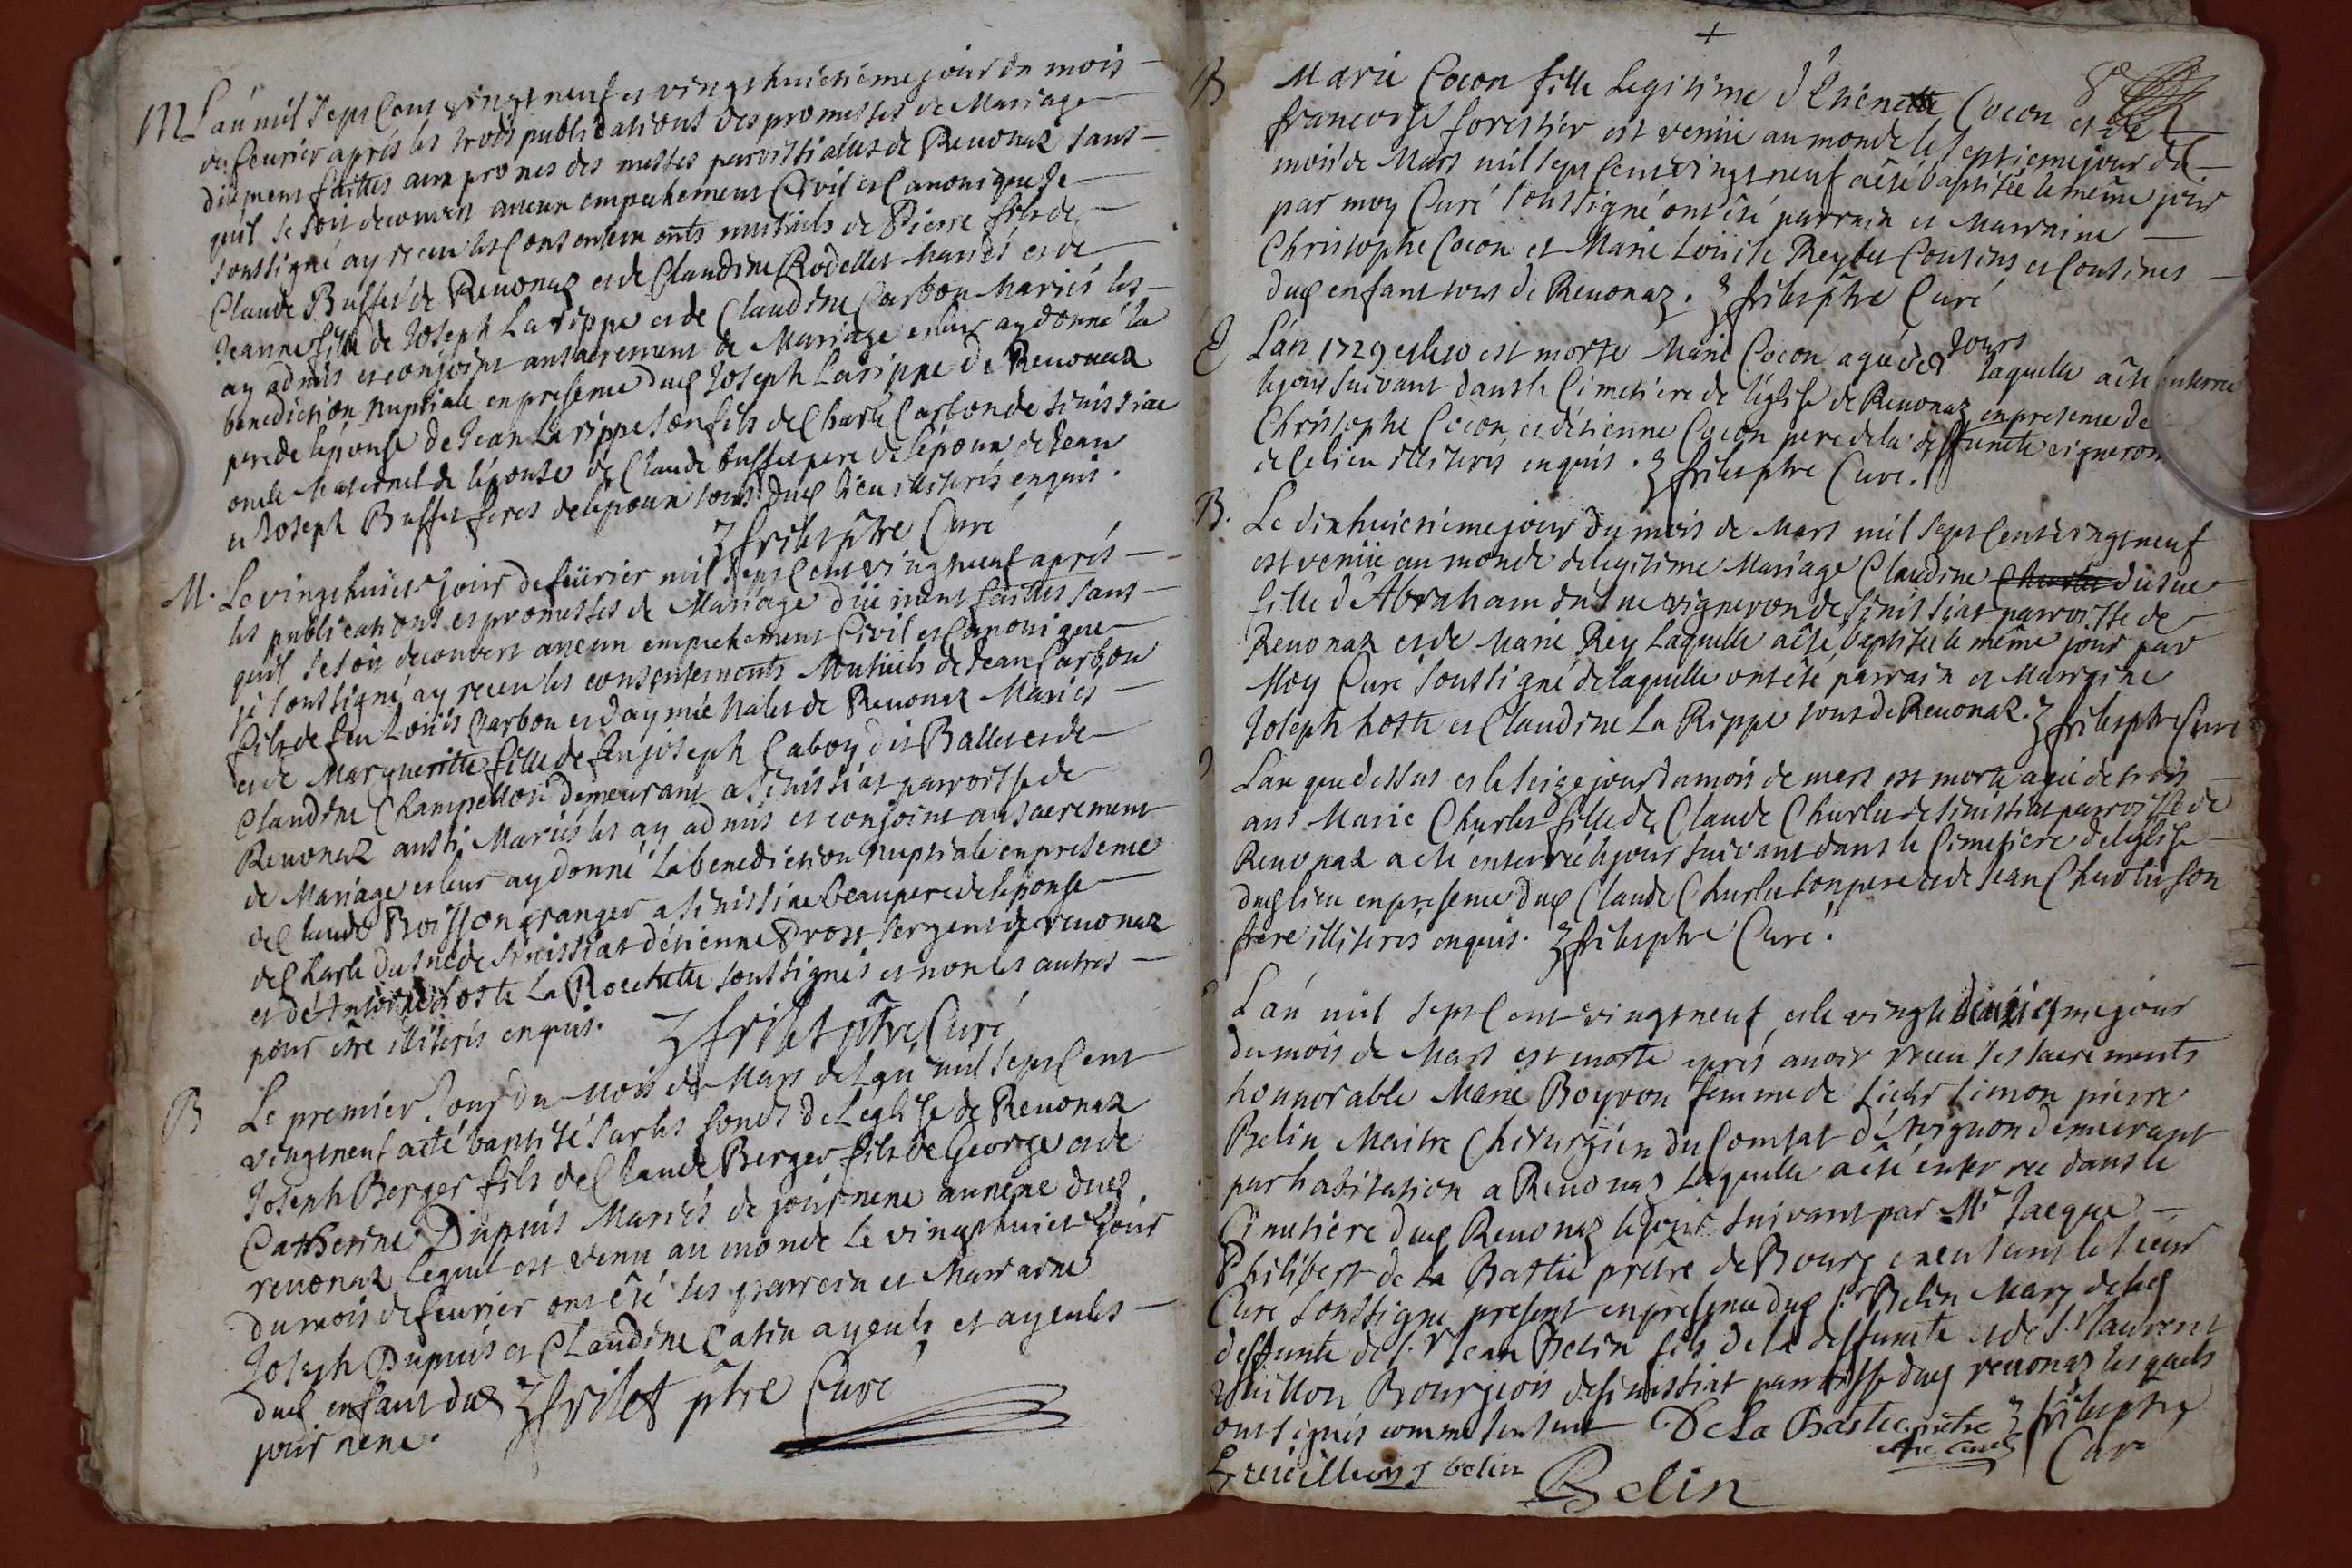 M L'an mil sept Cent vingt neuf et vingt huictieme jour du mois
de feurier aprés les trois publications des promesses de Mariage
düement faittes aux prones des messes parroissialles de Reuonaz sans
quil se soit decouuert aucun empechement Civil et Canonique Je
soussigné ay receu les Consentements mutüels de Pierre fils de
Claude Buffet de Reuonaz et de Claudine Rodellet Mariés et de
Jeanne fille de Joseph La rippe et de Claudine Carbon Mariés les
ay admis et conjoint au sacrement de Mariage et leur ay donné la
benediction nuptiale en presence dud Joseph Larippe de Reuonaz
pere de lépouse de Jean La rippe son fils de Charle Carbon de sinissiat
oncle Maternel de lépouse de Claude buffet pere de lépoux de Jean
et Joseph Buffet freres de lépoux tous dud lieu illiterés enquis.
frilet ptre Curé
M. Le vingt huict jour de feürier mil sept Cent vingt neuf aprés
les publications et promesses de Mariage düement faittes sans
quil se soit decouuert aucun empechement Civil et Canonique
je soussigné ay receu les consentements Mutüels de Jean Carbon
fils de feu Loüis Carbon et d'aymée Nalet de Reuonaz Mariés
et de Margueritte fille de feu joseph Caboy dit Ballet et de
Claudine Champellon demeurant a sinissiat parroisse de
Reuonaz aussi Mariés les ay admis et conjoint au sacrement
de Mariage et leur ay donné La benediction nuptiale en presence
de Claude Boisson granger a sinissiat beaupere de lépouse
de Charle dusne de sinissiat d'étienne Prost sergent de reuonaz
et d'Antoine hoste La Rochette soussignés et non les autres
pour être illiterés enquis. frilet ptre Curé
B Le premier Jour du Mois de Mars de L'an mil sept Cent
vingt neuf a été baptisé sur les fonds de Léglise de Reuonaz
Joseph Berger fils de Claude Berger fils de George et de
Catherine Dupuis Mariés de journene annexe dud
reuonaz lequel est venu au monde le vingt huict jour
du mois de feurier ont été ses parrein et Marraine
Joseph Dupuis et Claudine Catin ayeuls et ayeules
dud enfant dud frilet ptre Curé
jour nene.
+
8
B Marie Cocon fille Legitime d'Etienne Cocon et de
francoise forestier est venüe au monde le septieme jour du
mois de Mars mil sept Cent vingt neuf a été baptisée le même jour
par moy Curé soussigné ont été parrain et Marraine
Christophe Cocon et Marie Loüise Reybet Cousins et Cousines
dud enfant tous de Reuonaz. frilet ptre Curé
L'an 1729 et le 10 est morte Marie Cocon agée de Jours laquelle a été enterrée
le jour suivant dans le Cimetiere de l'église de Reuonaz en presence de
Christophe Cocon et d'étienne Cocon pere de la deffuncte vigneron
de Ce lieu illiterés enquis. frilet ptre Curé.
B. Le dix huictieme jour du mois de Mars mil sept Cent vingt neuf
est venüe au monde de legitime Mariage Claudine dusne
fille d'Abraham dusne vigneron de sinissiat parroisse de
Reuonaz et de Marie Rey Laquelle a été baptisée le même jour par
Moy Curé soussigné de laquelle ont été parrain et Marraine
Joseph hoste et Claudine La Rippe tous de Reuonaz. frilet ptre Curé
L'an que dessus et le seize jour du mois de mars est morte agée de trois
ans Marie Churlet fille de Claude Churlet de sinissiat parroisse de
Reuonaz a été enterrée le jour suivant dans le Cimetiere de léglise
dud lieu en presence dud Claude Churlet son pere et de Jean Churlet son
frere illiterés enquis. frilet ptre Curé.
L'an mil sept Cent vingt neuf et le vingt deuxiesme jour
du mois de Mars est morte aprés auoir receu ses sacrements
honnorable Marie Boyron femme de sieur simon pierre
Belin Maitre Chirurgien du Comtat d'Avignon demeurant
par habitation a Reuonaz Laquelle a été enterrée dans le
Cimetiére dud Reuonaz le jour suivant par Mr Jacque
Philibert de La Bastie prétre de Bourg le sieur
Curé soussigné present en presence dud Sr Belin Mary de lad
deffunte de Sr Jean Belin fils de la deffuncte et de Sr Laurent
Bourgeois de sinissiat parroisse dud reuonaz lesquels
ont signés De La Bastie prétre frilet ptre
belin Curé
Belin